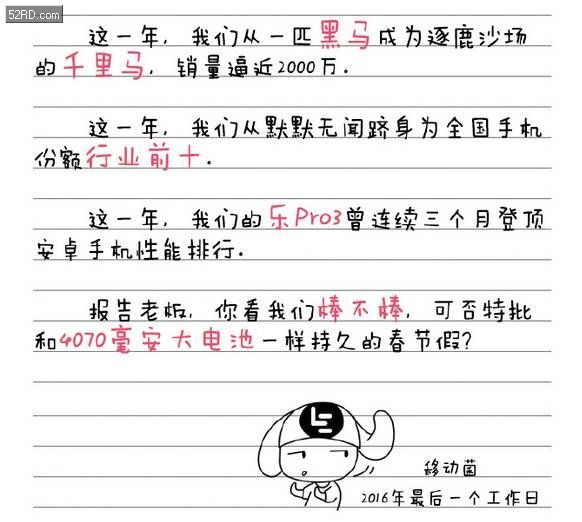 52RD.com
这一年, 我们从一匹黑马成为逐鹿沙场
的千里马, 销量逼近2000万.
这一年, 我们从默默无闻跻身为全国手机
份额行业前十.
这一年, 我们的乐Pro3曾连续三个月登顶
安卓手机性能排行.
报告老板, 你看我们棒不棒, 可否特批
和4070毫安大电池一样持久的春节假?
移动菌
2016年最后一个工作日